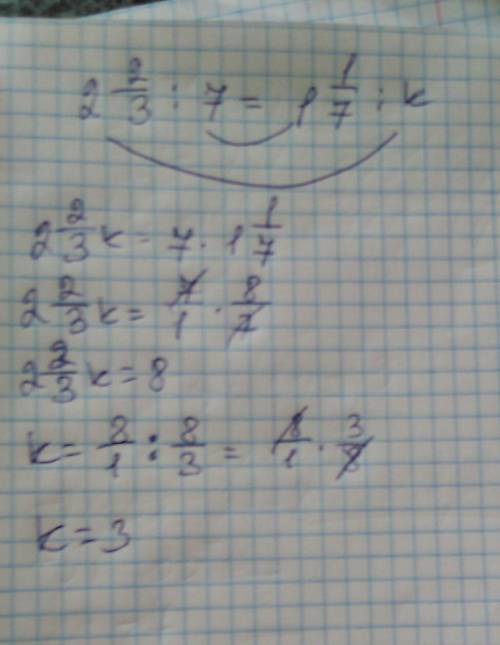 2 2/3 : 7 = 1 1/7 : k
2 2/3 k = 7 · 1 1/7
2 2/3 k = 7/1 · 8/7
2 2/3 k = 8
k = 8/1 : 8/3 = 8/1 · 3/8
k = 3